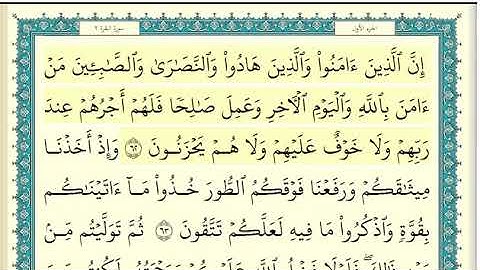 سورة البقرة ٢ الجزء الأول
إِنَّ ٱلَّذِينَ ءَامَنُوا۟ وَٱلَّذِينَ هَادُوا۟ وَٱلنَّصَٰرَىٰ وَٱلصَّٰبِـِٔينَ مَنْ
ءَامَنَ بِٱللَّهِ وَٱلْيَوْمِ ٱلْءَاخِرِ وَعَمِلَ صَٰلِحًا فَلَهُمْ أَجْرُهُمْ عِندَ
رَبِّهِمْ وَلَا خَوْفٌ عَلَيْهِمْ وَلَا هُمْ يَحْزَنُونَ ٦٢ وَإِذْ أَخَذْنَا
مِيثَٰقَكُمْ وَرَفَعْنَا فَوْقَكُمُ ٱلطُّورَ خُذُوا۟ مَآ ءَاتَيْنَٰكُم
بِقُوَّةٍ وَٱذْكُرُوا۟ مَا فِيهِ لَعَلَّكُمْ تَتَّقُونَ ٦٣ ثُمَّ تَوَلَّيْتُم مِّنۢ